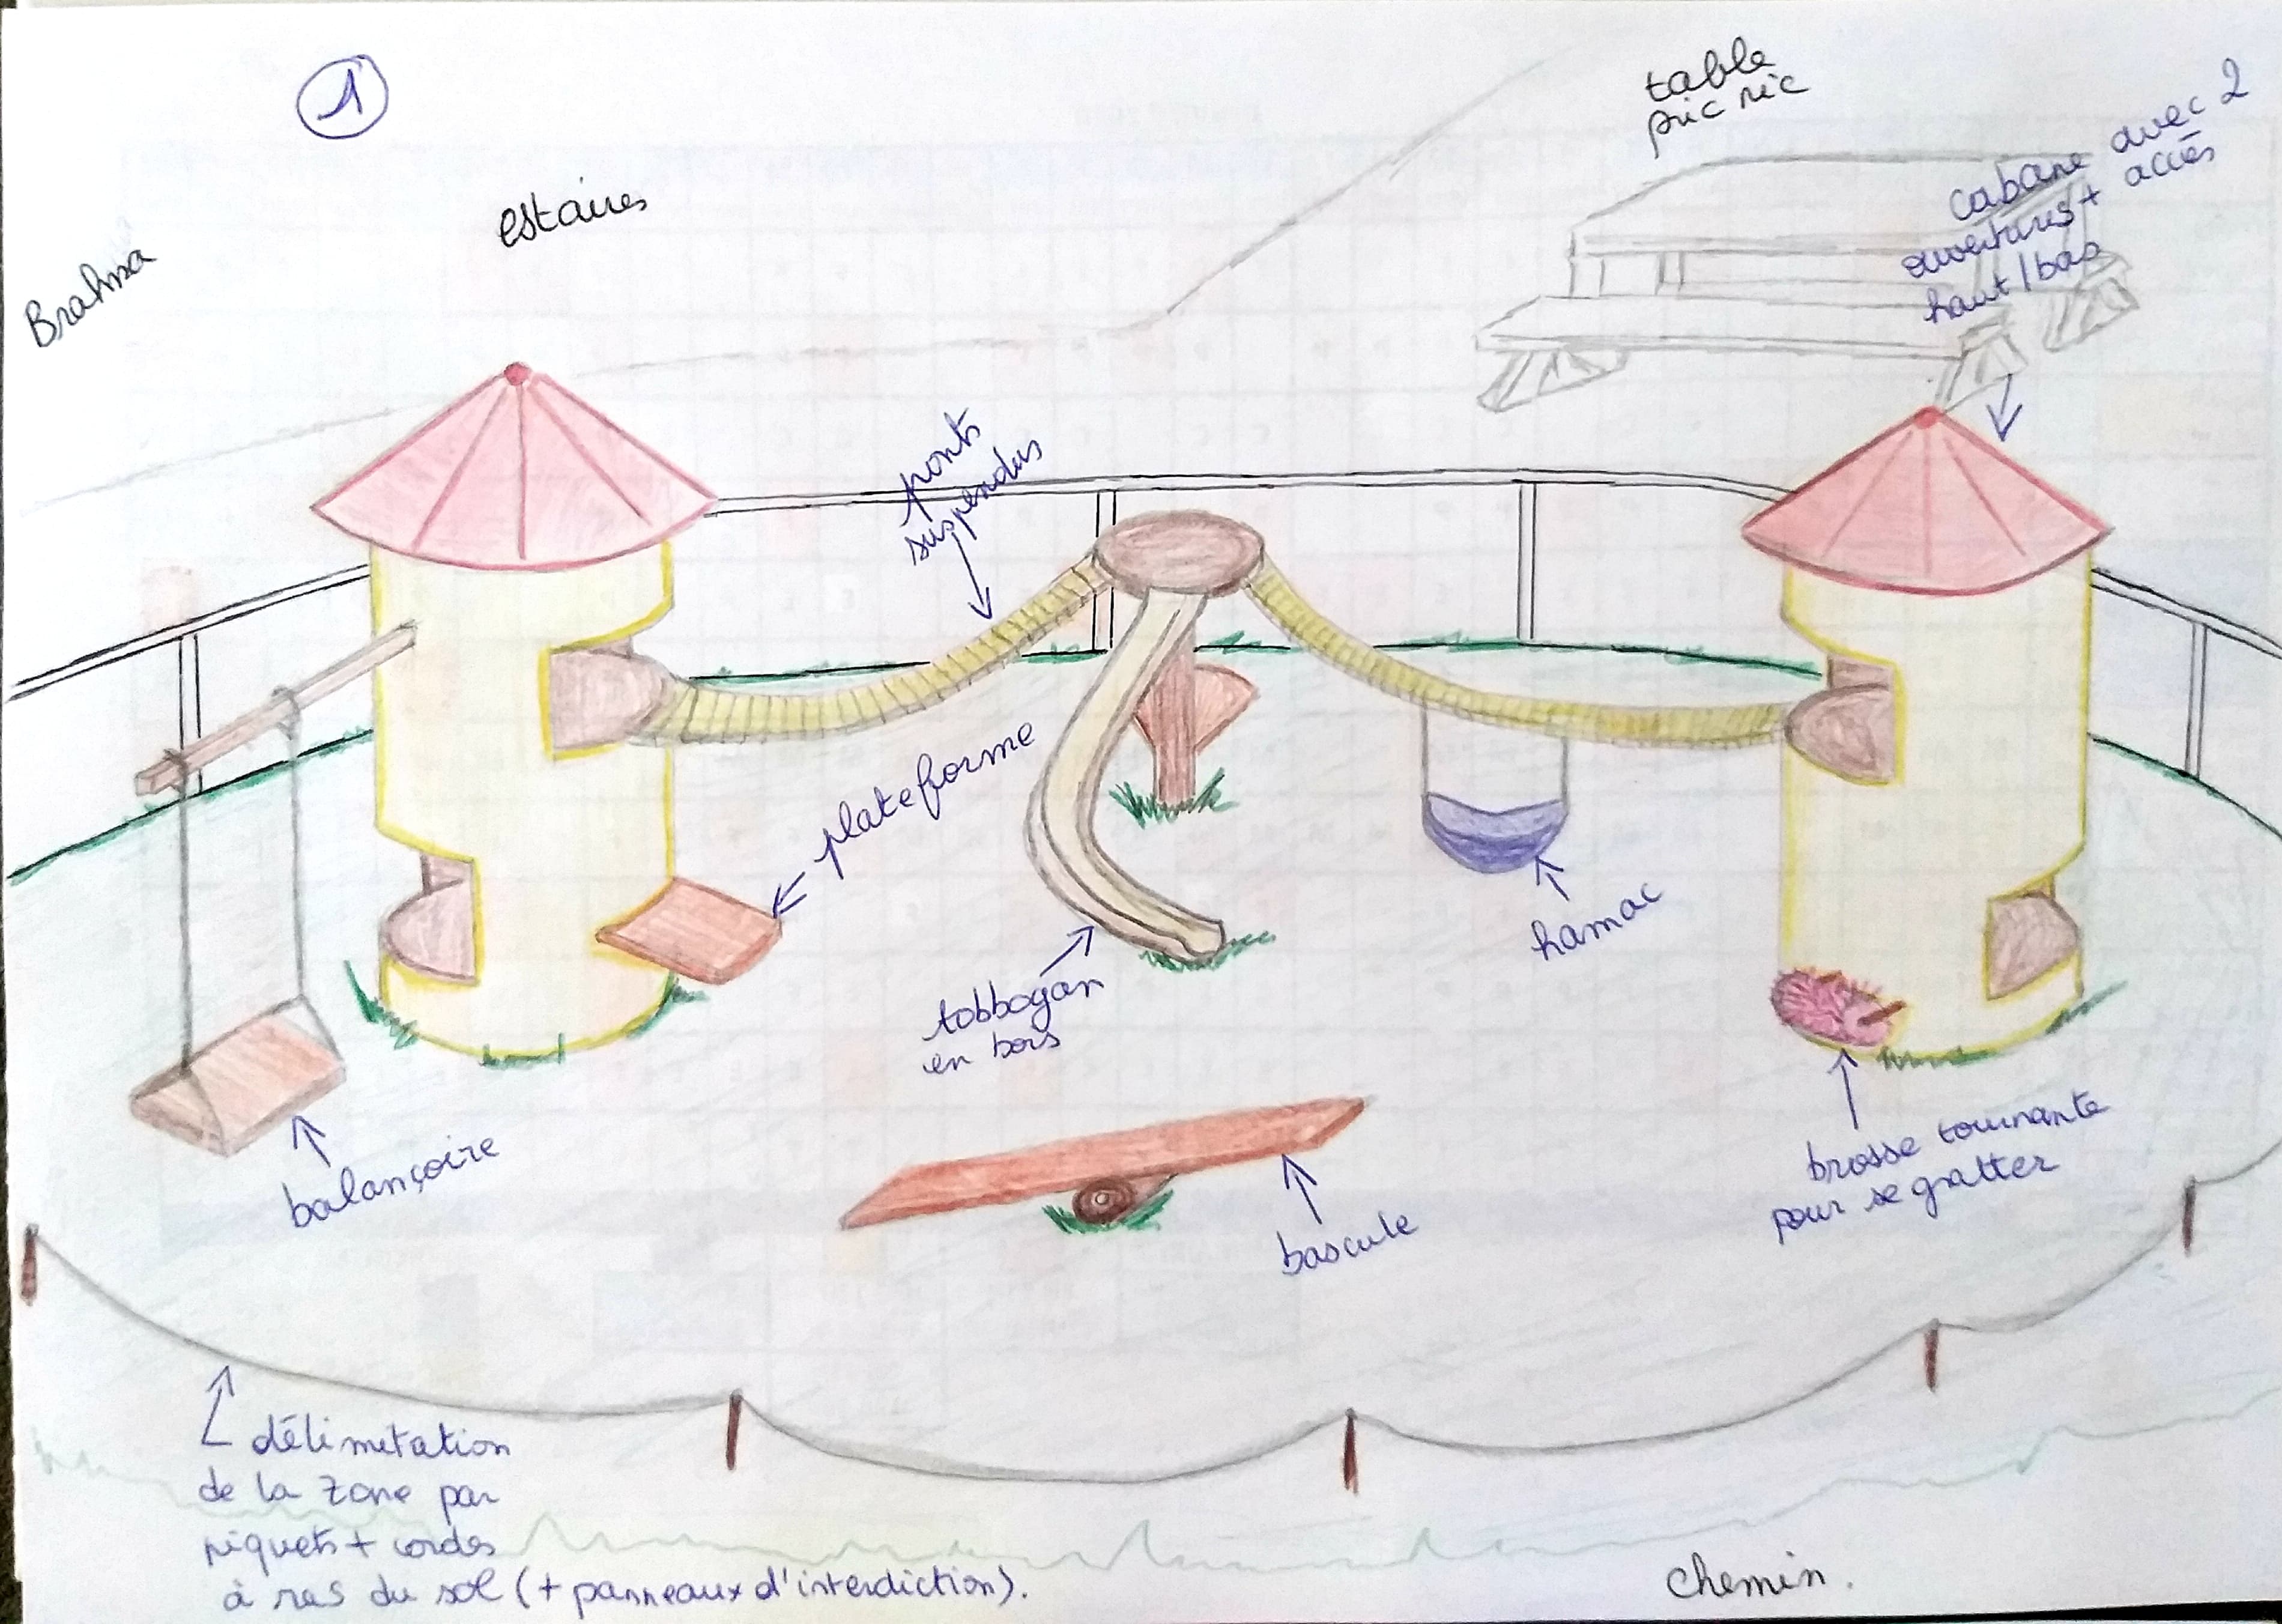 1
estaires
Brahma
table
pic nic
cabane avec 2
ouvertures + accès
haut / bas
ponts
suspendus
plateforme
hamac
tobbogan
en bois
balançoire
bascule
brosse tournante
pour se gratter
délimitation
de la zone par
piquets + cordes
à ras du sol (+ panneaux d'interdiction).
chemin.